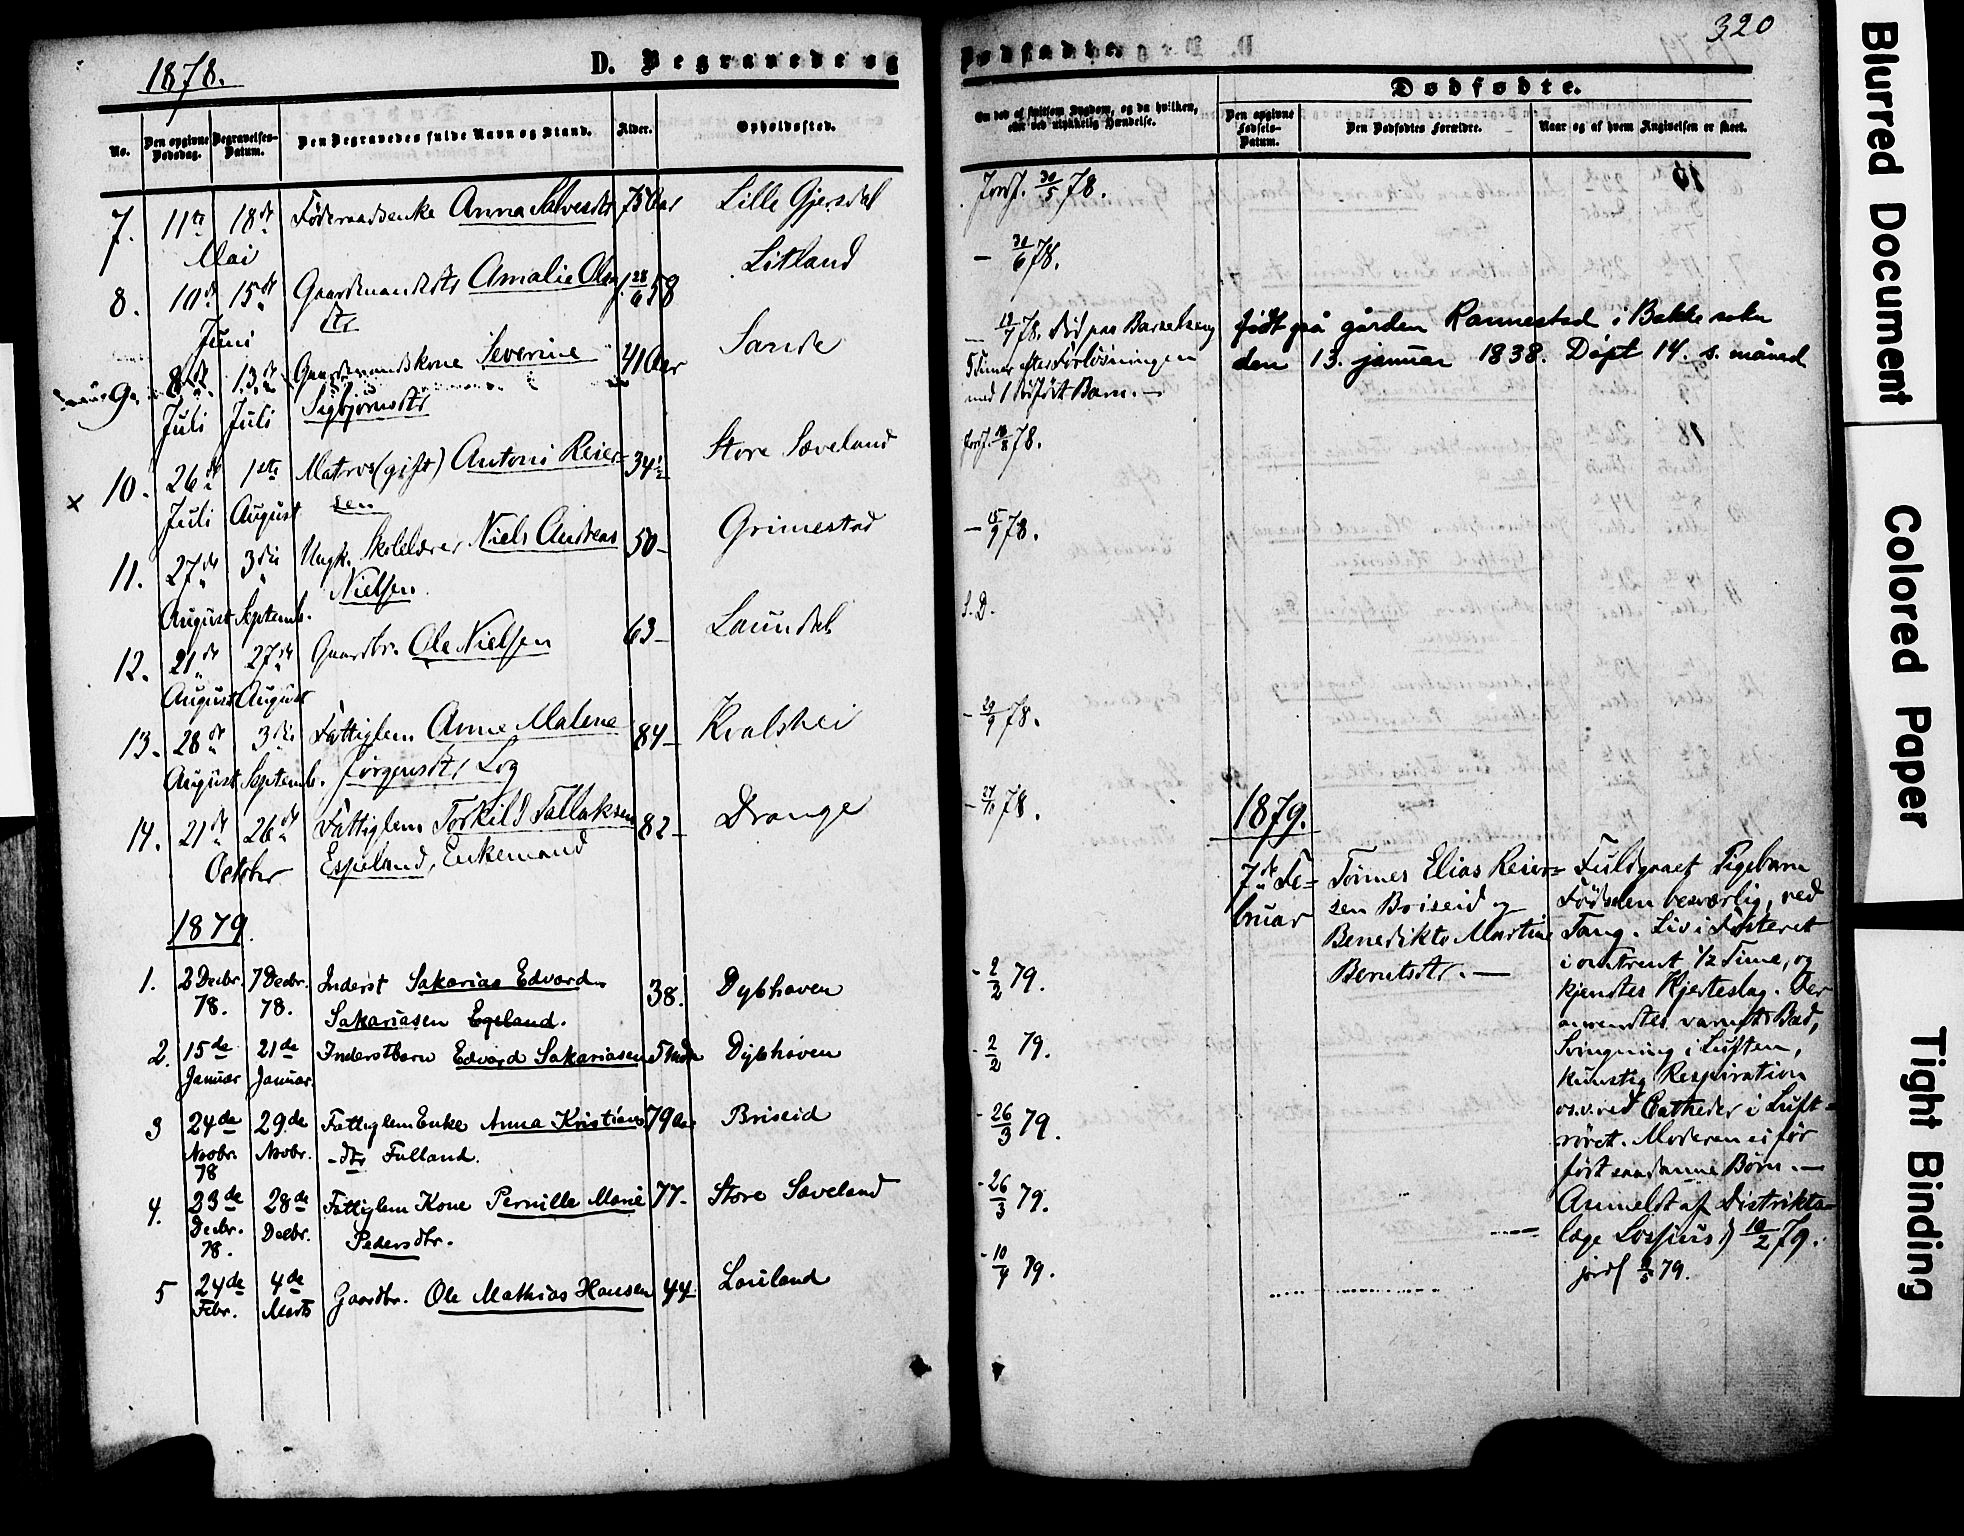 320
1878.
D. Begravede og
No.
Den opgivne Dødsdag.
Begravelses-Datum.
Den Begravedes fulde Navn og Stand.
Alder.
Opholdssted.
7. 11te 18de Føderaadsenke Anna Salvesdtr 75 Aar Lille Gjersdal
Mai
8. 10de 15de Gaardmandsdtr Amalie Ols- f. 28/6 58 Litland
Juni dtr
9. 8de 13de Gaardmandskone Severine 41 Aar Sande
Juli Juli Sigbjørnsdtr
× 10. 26de 1ste Matros (gift) Antoni Reier- 34½ Store Sæveland
Juli August sen
11. 27de 3die Ungk. Skolelærer Niels Andreas 50- Grimestad
August Septemb. Nielsen
12. 21de 27de Gaardbr. Ole Nielsen 63- Laundal
August August
13. 28de 3die Fattiglem Anne Malene 84- Kvalshei
August Septemb. Jørgensdtr Log
14. 21de 26de Fattiglem Torkild Tallaksen 82- Drange
October Espeland, Enkemand
1879.
1. 2 Decbr. 7 Decbr. Inderst Sakarias Edvard 38. Dybhaven
78. 78. Sakariasen Egeland.
2. 15de 21de Inderstbarn Edvard Sakariasen 5 Mdr Dybhaven
Januar Januar.
3 24de 29de Fattiglem Enke Anna Kristians 79 Aar Briseid
Novbr. Novbr. -dtr Fulland.
78
4. 23de 28de Fattiglem Kone Pernille Marie 77- Store Saveland
Decbr. Decbr. Pedersdtr.
78.
5 24de 4de Gaardbr. Ole Mathias Hansen 44- Lauland
Febr. Marts
Dødfødte.
Dødfødte.
Om død af smitsom Sygdom, og da hvilken,
eller ved ulykkelig Hændelse.
Den opgivne Fødsels-Datum.
Den Dødfødtes Forældre.
Naar og af hvem Angivelsen er skeet.
Jordf. 30/5 78.
- 30/6 78.
- 12/7 78. Død paa Barselseng
5 Timer efter Forløsningen
med 1 dødfødt Barn. —
født på gården Rannestad i Bakke sokn
den 13. januar 1838. Døpt 14. s. måned
Jordf. 18/8 78.
- 15/9 78.
S. D.
- 29/9 78.
- 27/10 78.
- 2/2 79.
- 2/2 79.
- 26/3 79.
- 26/3 79.
- 10/4 79.
1879.
7de Fe-
bruar
Tønnes Elias Reier-
sen Briseid og
Benedikte Martine
Berntsdtr. —
Fuldbaaret Pigebarn
Fødselen besværlig, ved
Tang. Liv i Fosteret
i omtrent ½ Time, og
kjendtes Hjerteslag. Der
anvendtes varmt Bad,
Svingning i Luften,
kunstig Respiration
o.s.v. ved Catheder i Luft-
røret. Moderen ei før
født saadanne Børn. —
Anmeldt af Distrikts-
læge 10/2 79.
jordf 79.
Blurred Document
Colored Paper
Tight Binding